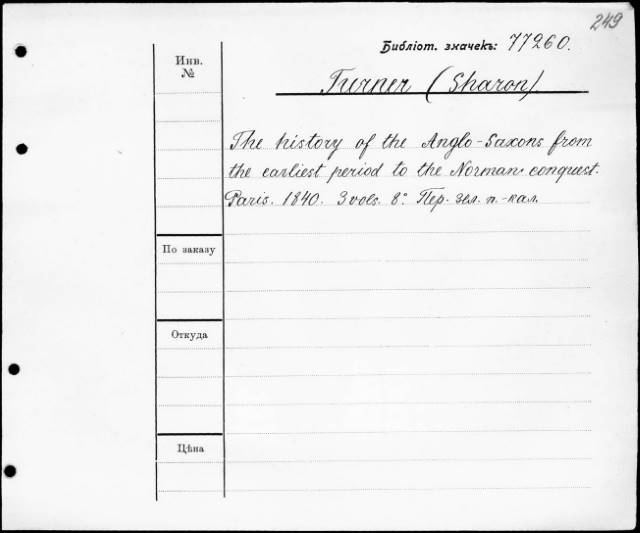 249
Библіот. значекъ: 77260.
Инв.
№
Turner (Sharon).
The history of the Anglo-Saxons from
the earliest period to the Norman conquest.
Paris. 1840. 3 vols. 8°. Пер. зел. п.-кал.
По заказу
Откуда
Цѣна